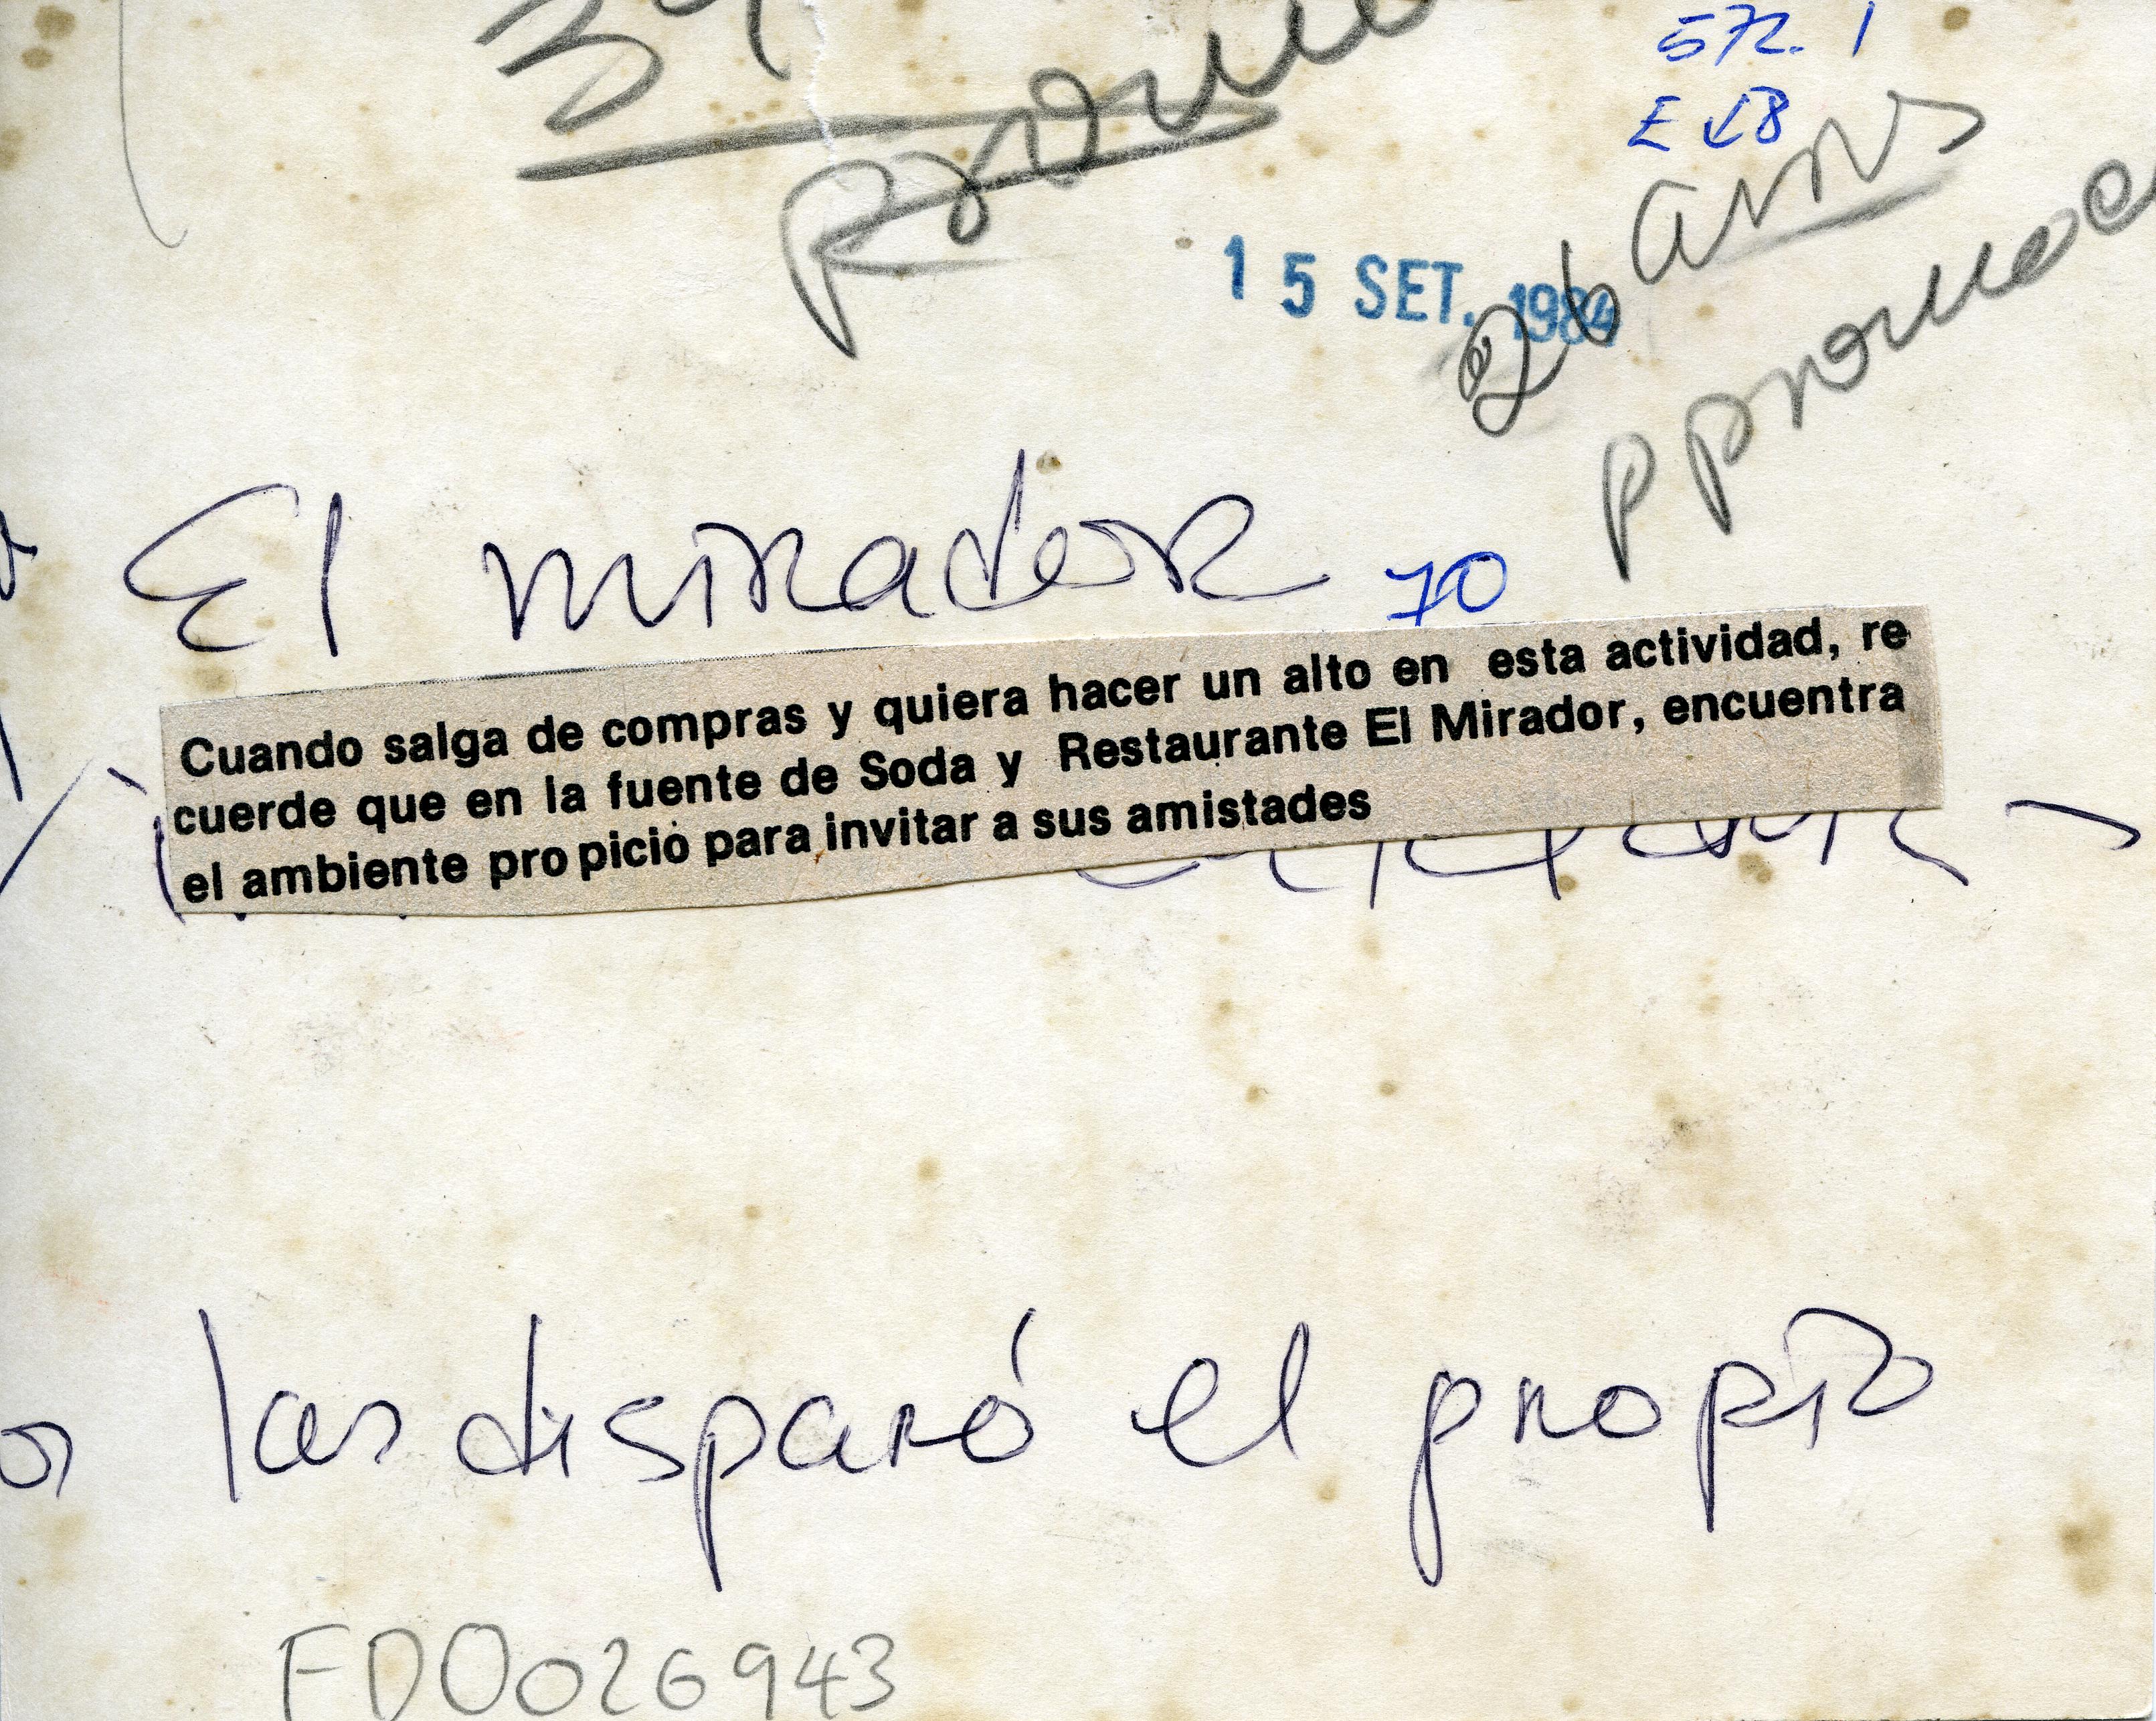 572. 1
15 SET. 1984
26 años
El mirador 70
Cuando salga de compras y quiera hacer un alto en esta actividad, re
cuerde que en la fuente de Soda y Restaurante El Mirador, encuentra
el ambiente propicio para invitar a sus amistades
las disparó el propio
FD0026943